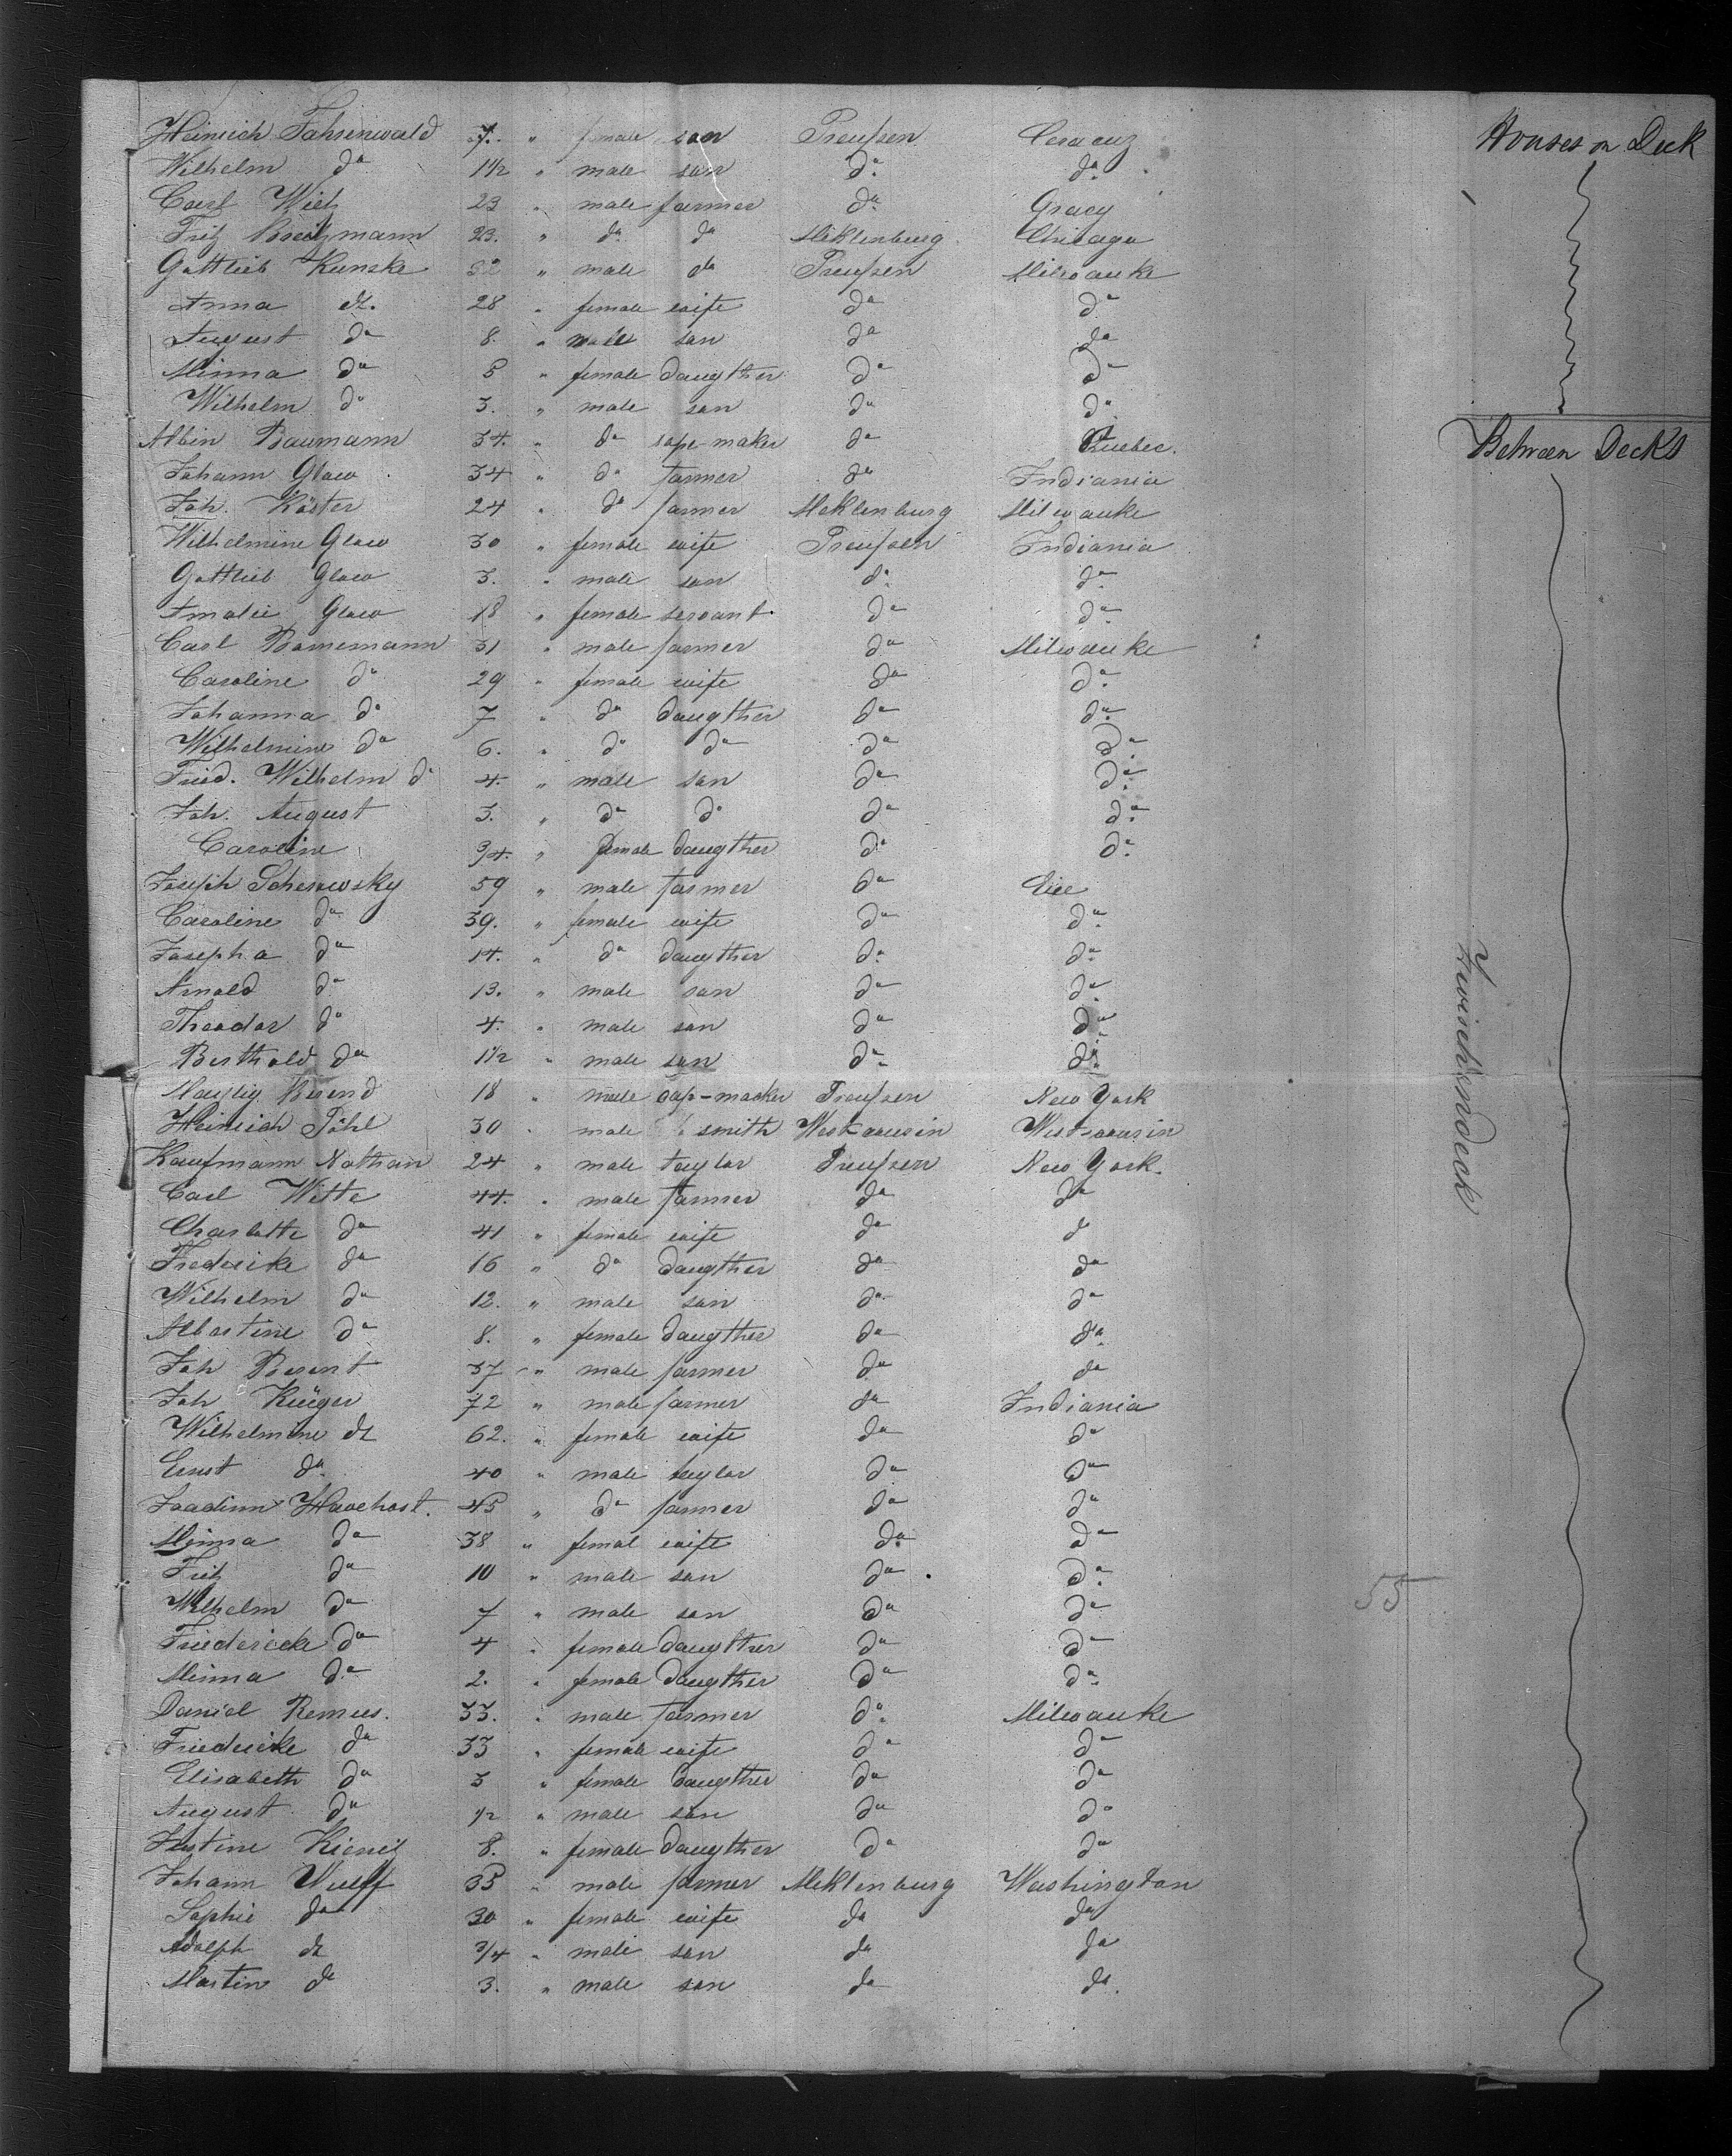 Heinrich Fahrenwald 7. " female son Preußen
Wilhelm do 1 1/2 " male son do do
Carl 23 " male farmer do Gracy
Fritz Breitzmann 23. " do do Meklenburg Chicago
Gottlieb Kunske 32 " male do Preußen Milwauke
Anna do 28 " female wife do do
August do 8. " male son do do
Minna do 5 " female daugther do do
Wilhelm do 3. " male son do do
Albin Baumann 34. " do maker do Quebec.
Johann Glaw 34 " do farmer do Indiania
Joh. Köster 24 " do farmer Meklenburg Milwauke
Wilhelmine Glaw 30 " female wife Preußen Indiania
Gottlieb Glaw 3. " male son do do
Amalie Glaw 18 " female servant do do
Carl Bornemann 31 " male farmer do Milwauke
Caroline do 29 " female wife do do
Johanna do 7 " do daugther do do
Wilhelmine do 6. " do do do do
Fried. Wilhelm do 4. " male son do do
Joh. August 3. " do do do do
Caroline 3/4. " female daugther do do
Joseph Scherowsky 59 " male farmer do
Caroline do 39. " female wife do do
Josepha do 14. " do daugther do do
Arnold do 13. " male son do do
Theodor do 4. " male son do do
Berthold do 1 1/2 " male son do do
Berend 18 " male cap-macker Preußen New York
Heinrich Pöhl 30 " male smith
Kaufmann Nathan 24 " male taylor Preußen New York.
Carl Witte 44. " male farmer do do
Charlotte do 41 " female wife do do
Frederike do 16 " do daugther do do
Wilhelm do 12. " male son do do
Albertine do 8. " female daugther do do
Joh Berent 37 " male farmer do do
Joh Krüger 72 " male farmer do Indiania
Wilhelmine do 62. " female wife do do
Ernst do 40 " male taylor do do
Joachim Havehost. 45 " do farmer do do
Minna do 38 " femal wife do do
Fritz do 10 " male son do do
Wilhelm do 7 " male son do do
Friedericke do 4 " female daugther do do
Minna do 2. " female daugther do do
Daniel Remus. 33. " male farmer do Milwauke
Friedericke do 33 " female wife do do
Elisabeth do 3 " female daugther do do
August do 1/2 " male son do do
Justine 8. " female daugther do do
Johann Wulff 35 " male farmer Meklenburg Washington
Sophie do 30 " female wife do do
Adolph do 3/4 " male son do do
Martin do 3. " male son do do
Houses on Deck
Between Decks
Zwischendeck
55